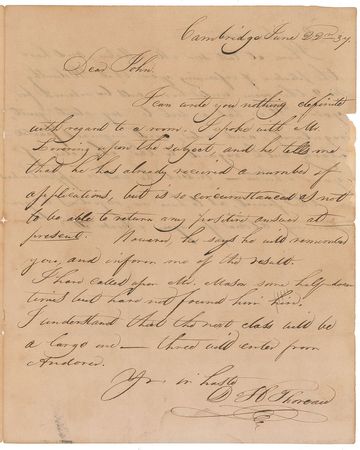 Cambridge June 22nd 37.
Dear John.
I can write you nothing definite
with regard to a room. I spoke with Mr.
Lovering upon the subject, and he tells me
that he has already received a number of
applications, but is so circumstanced as not
to be able to return any positive answer at
present. However, he says he will remember
you, and inform me of the result.
I have called upon Mr. Mason some half-dozen
times but have not found him
I understand that the next class will be
a large one — three will enter from
Andover.
Yr in haste
D H Thoreau